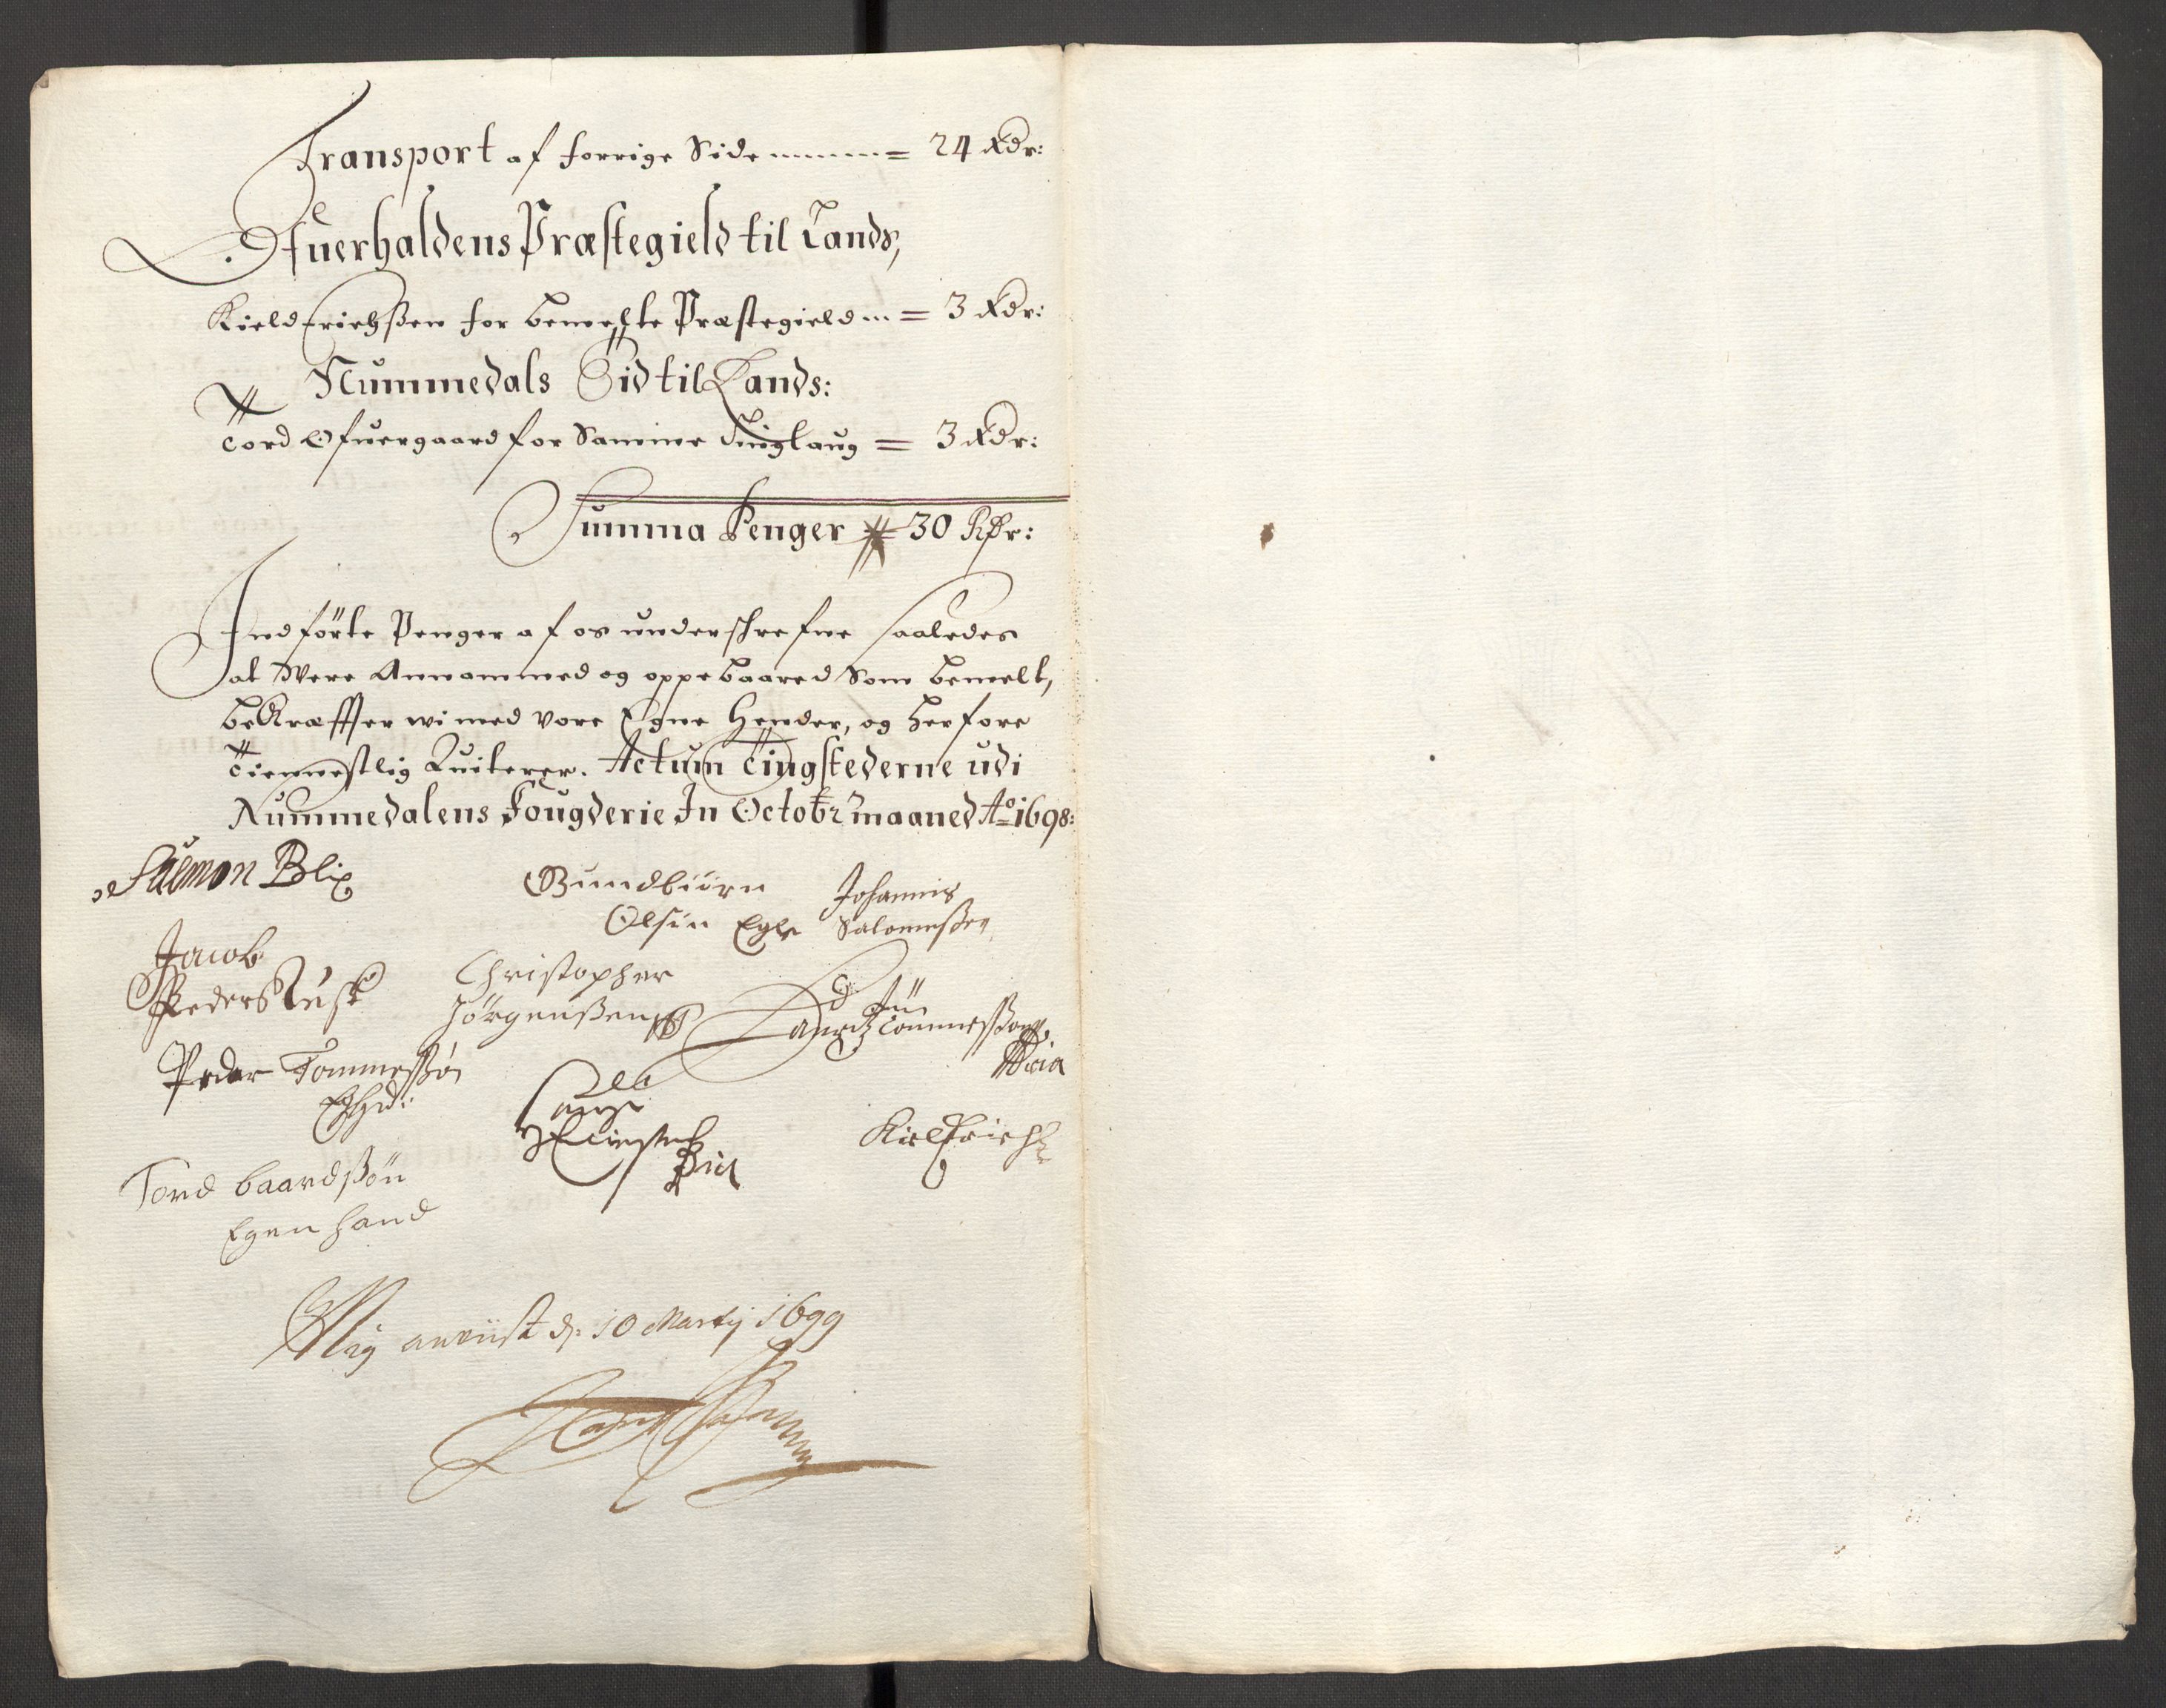 Transport af forrige Side = 24 Rdr:
Ofuerhaldens Præstegield til Lands,
Kield Erichßen for bemelte Præstegield = 3 Rdr:
Nummedals Eid til Lands:
Tord Ofuergaard for Samme Tinglaug = 3 Rdr:
Summa Penger 30 Rdr:
Indförte Penger af os underschrefne saaledes
at Were Annammed og oppebaared Som bemelt,
beKræffter wi med vore Egne Hender, og herfore
Tiennestlig Quiterer. Actum Tingstederne udi
Nummedalens Fougderie In Octobr maaned Ao 1698:
Salmon Blix
Gundbiörn
Olsen Egle
Johannis
Salomeßen
Jacob
Peders Rusk
Christopher
Jörgenßen
Lauritz Tommeßön
Peder Tommesßön
Ehd:
Kield Erichß
Tord baardsßön
Egen hand
Mig anviist d. 10 Martij 1699